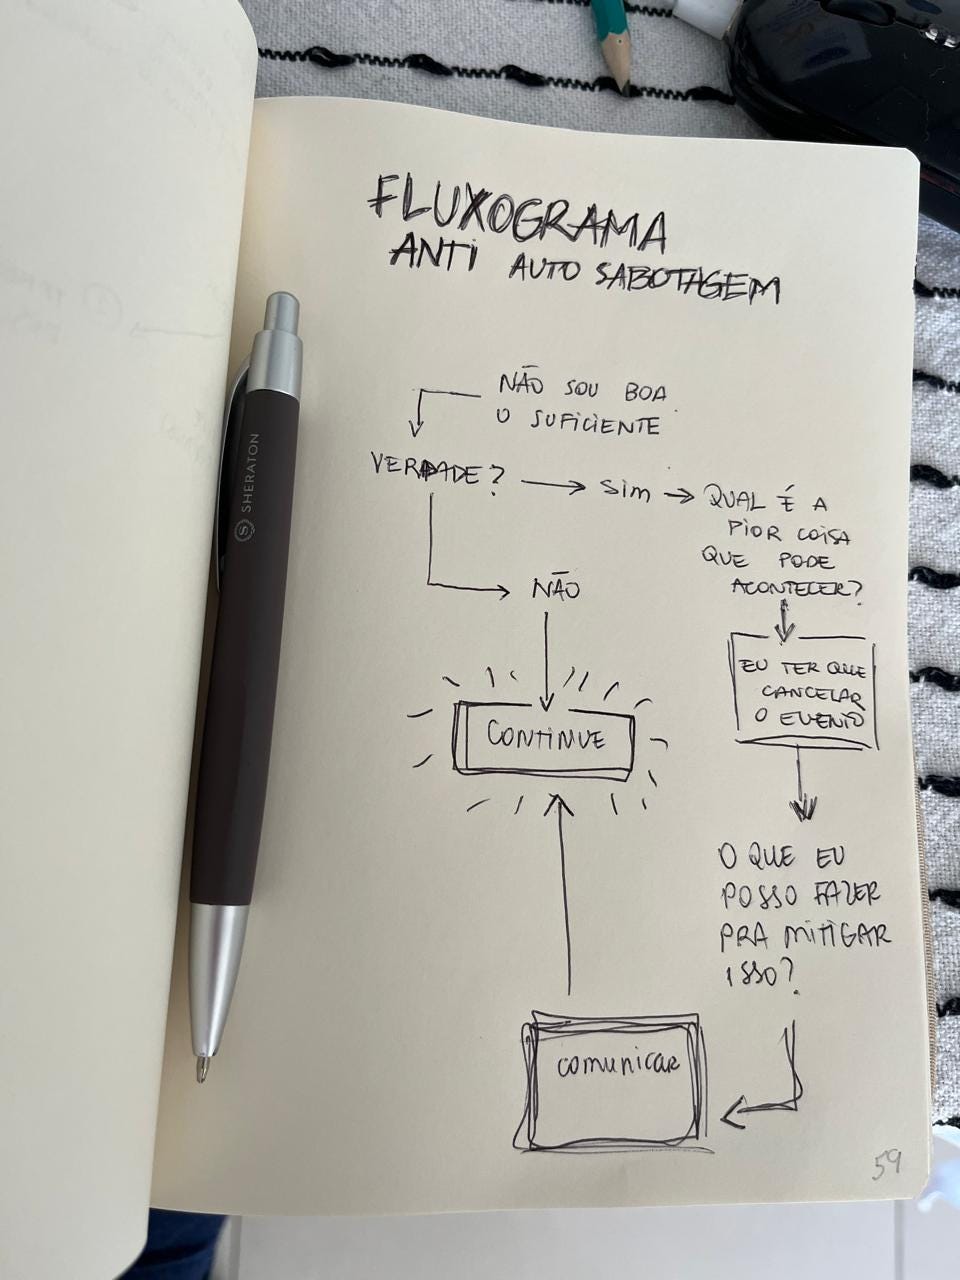 FLUXOGRAMA
ANTI AUTO SABOTAGEM
NÃO SOU BOA
O SUFICIENTE
VERDADE?
Sim
QUAL É A
PIOR COISA
QUE PODE
ACONTECER?
NÃO
EU TER QUE
CANCELAR
O EVENTO
CONTINUE
O QUE EU
POSSO FAZER
PRA MITIGAR
ISSO?
comunicar
59
S SHERATON